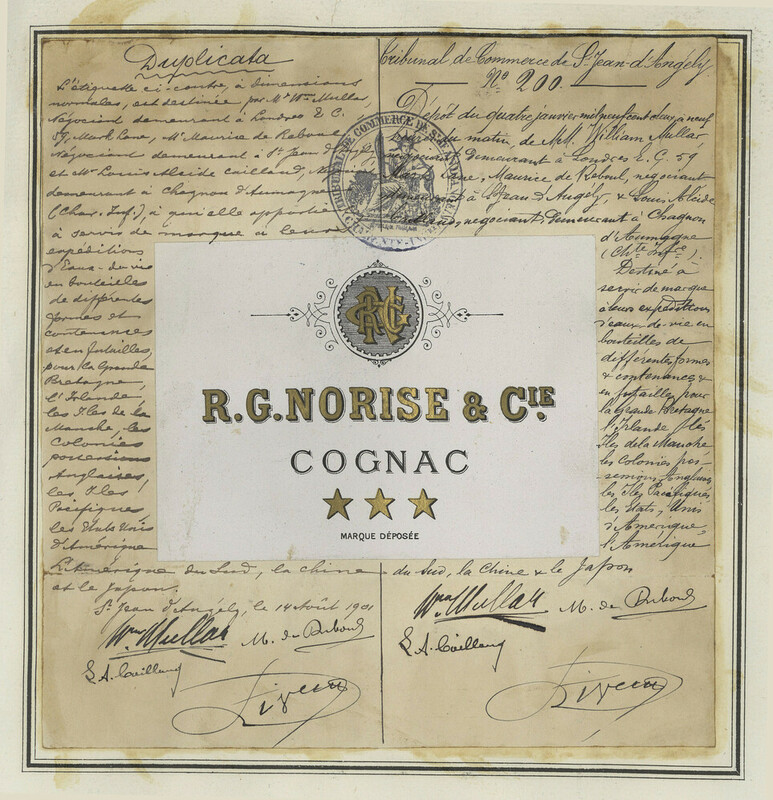 Duplicata
L'étiquette ci-contre, à dimensions
normales, est destinée par Mr Wm Mullar,
Négociant demeurant à Londres E. C.
59, Mark Lane, Mr Maurice de Reboul
Négociant demeurant à St Jean
et Mr Louis Alcide Cailland,
demeurant à Chagnon d'Aumagne
(Char. Inf.), à qui elle
à servir de marque à leurs
expéditions
d'Eaux-de-vie
en bouteilles
de différentes
formes et
contenances
et en futailles,
pour la Grande
Bretagne,
l'Irlande,
les Iles de la
Manche, les
Colonies
possessions
Anglaises,
les Iles
Pacifiques,
les Etats Unis
d'Amérique
L'Amérique du Sud, la Chine
et le Japon.
St Jean d'Angély, le 14 Août 1901
Wm Mullar M. de Reboul
L. A. Cailland
Tribunal de Commerce de St Jean-d'Angély
No 200.
Dépôt du quatre janvier mil neuf cent deux, à neuf
du matin, de MM. William Mullar
négociant Demeurant à Londres E. C. 59
Lane, Maurice de Reboul, négociant
demeurant à St Jean d'Angély, & Louis Alcide
Cailland, négociant, Demeurant à Chagnon
d'Aumagne
(Chte Infre).
Destiné à
servir de marque
à leurs expéditions
d'eaux-de-vie en
bouteilles de
différentes formes
& contenances &
en futailles pour
la Grande Bretagne
l'Irlande, les
Iles de la Manche
les Colonies pos-
sessions Anglaises
les Iles Pacifiques
les Etats-Unis
d'Amérique,
l'Amérique
du Sud, la Chine & le Japon
Wm Mullar M. de Reboul
L. A. Cailland
TRIBUNAL DE COMMERCE DE ST JEAN D'ANGELY
R.G.NORISE & CIE.
COGNAC
MARQUE DÉPOSÉE